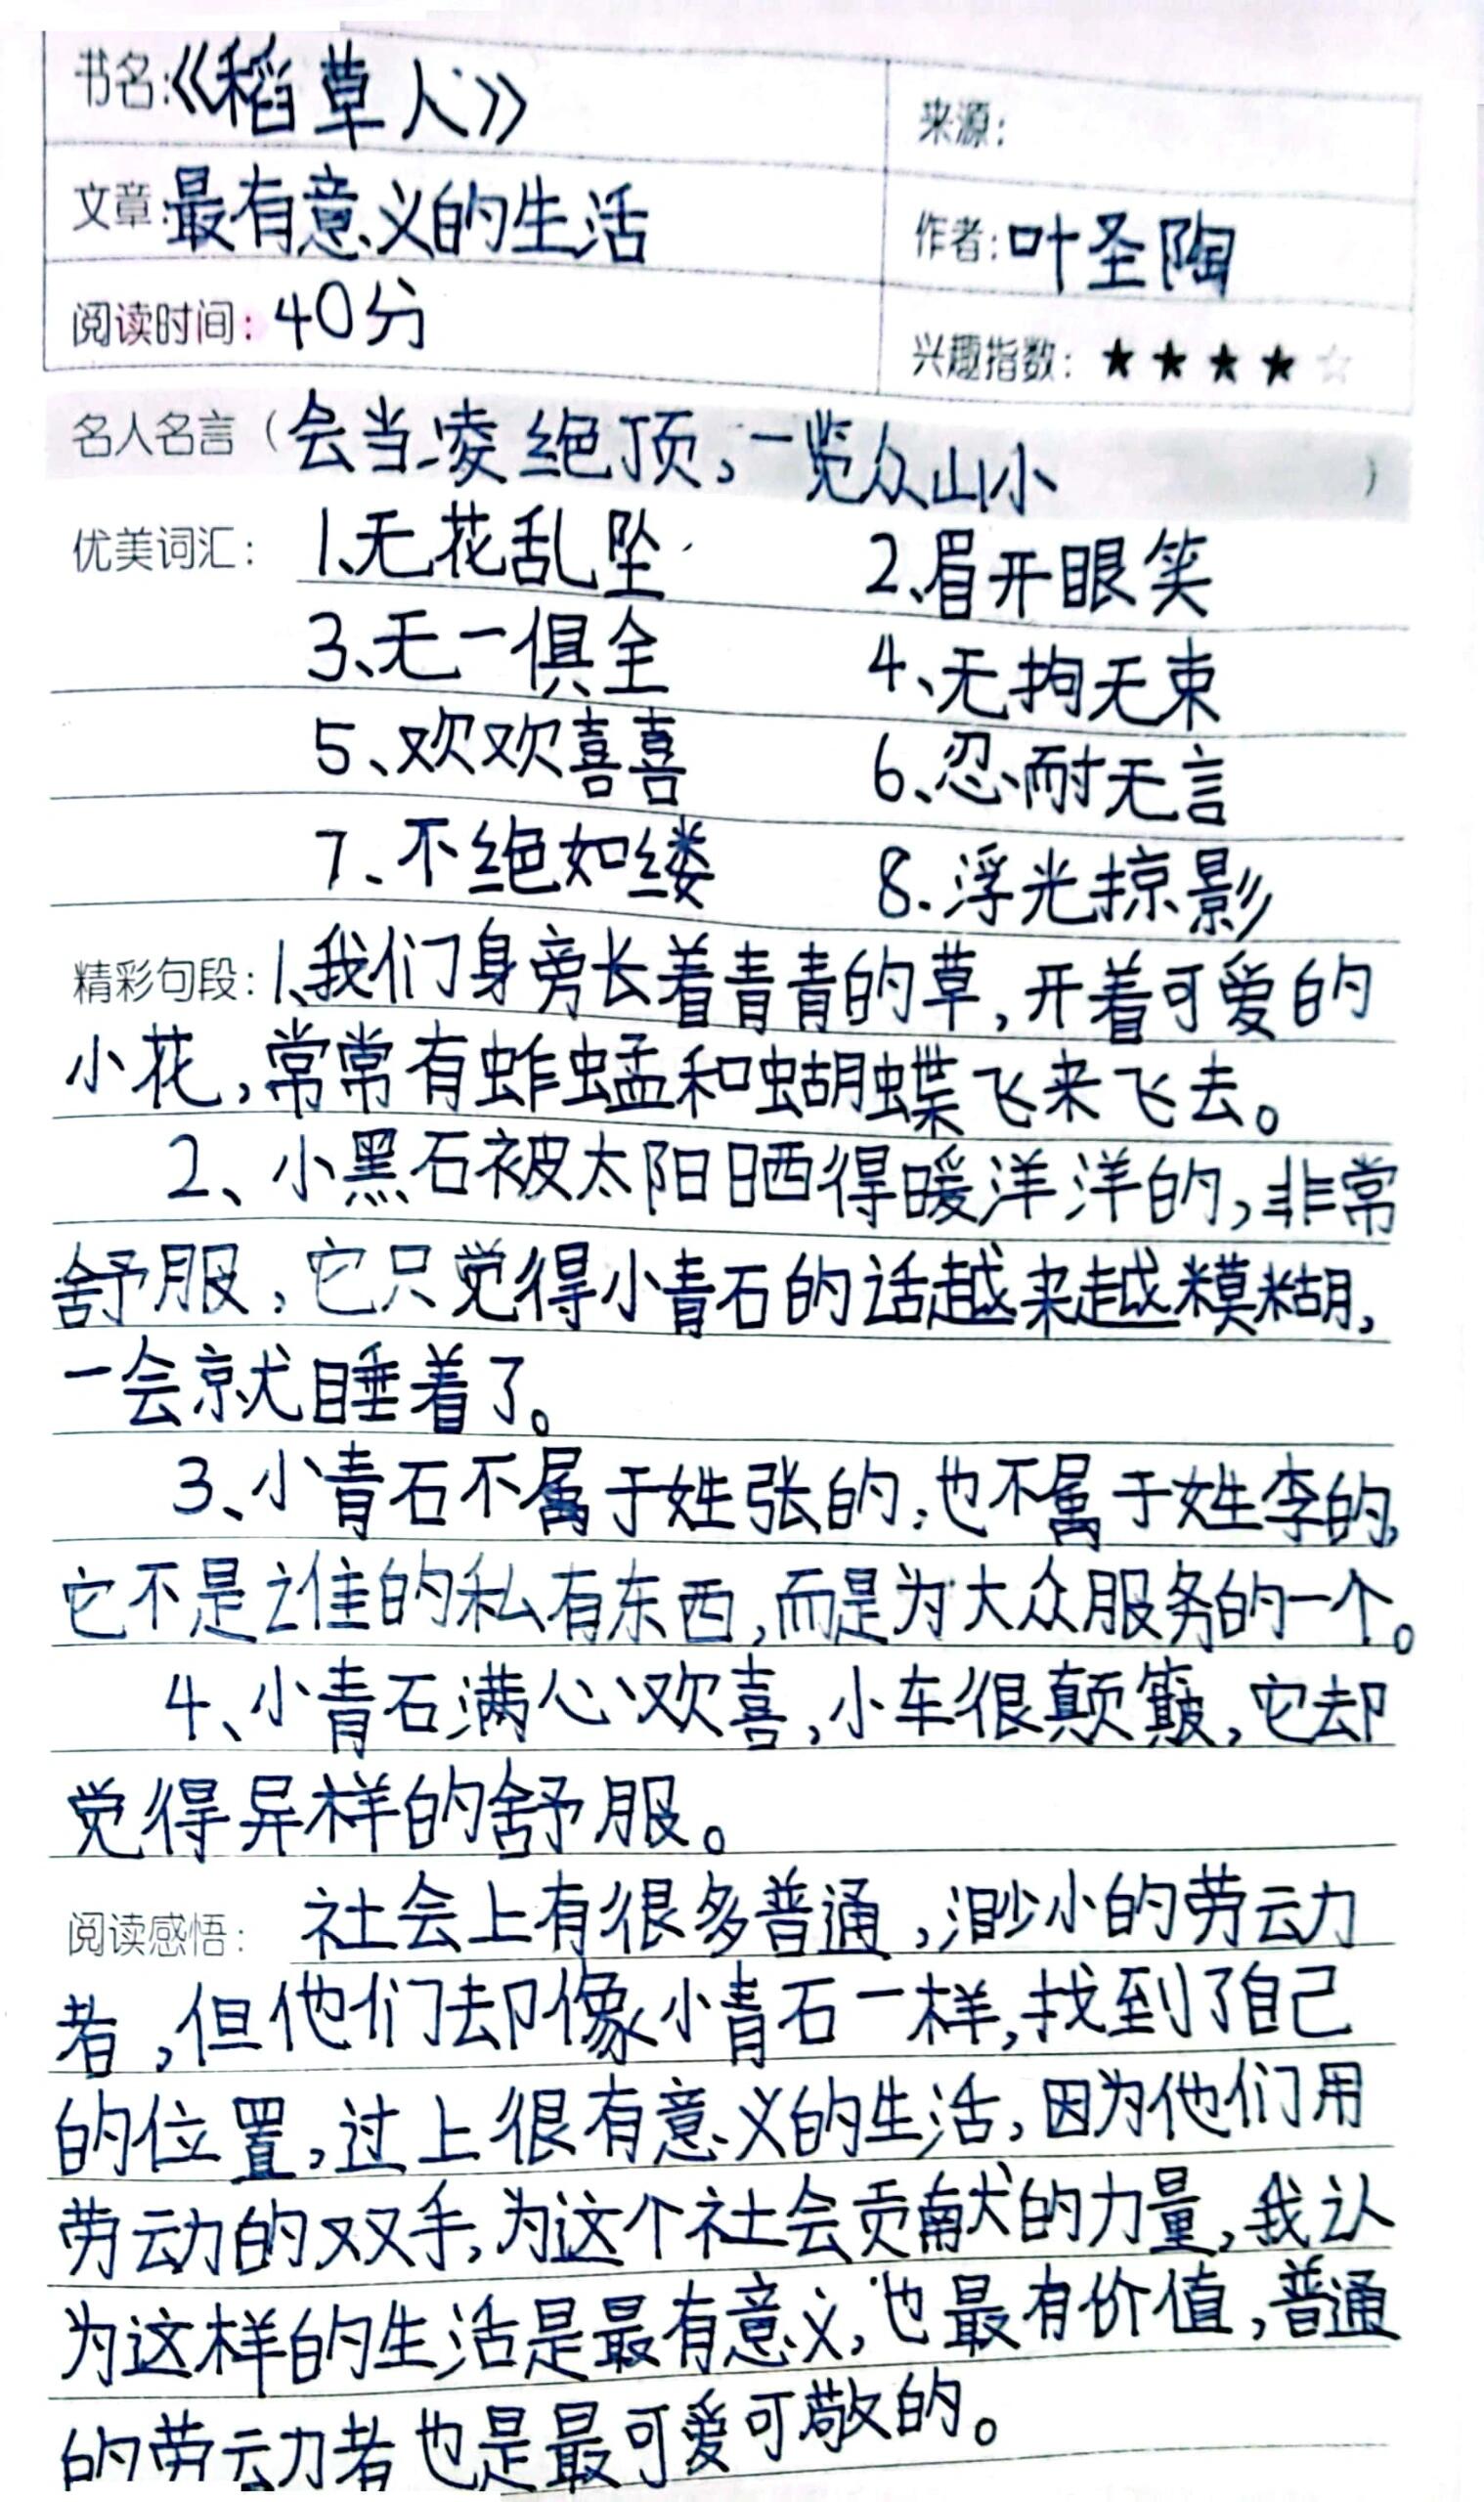 书名:《稻草人》
来源:
文章:最有意义的生活
作者:叶圣陶
阅读时间:40分
兴趣指数:★★★★☆
名人名言(会当凌绝顶,一览众山小)
优美词汇: 1、无花乱坠 2、眉开眼笑
3、无一俱全 4、无拘无束
5、欢欢喜喜 6、忍耐无言
7、不绝如缕 8.浮光掠影
精彩句段:1、我们身旁长着青青的草,开着可爱的
小花,常常有蚱蜢和蝴蝶飞来飞去。
2、小黑石被太阳晒得暖洋洋的,非常
舒服,它只觉得小青石的话越来越糢糊,
一会就睡着了。
3、小青石不属于姓张的,也不属于姓李的,
它不是谁的私有东西,而是为大众服务的一个。
4、小青石满心欢喜,小车很颠簸,它却
觉得异样的舒服。
阅读感悟: 社会上有很多普通,渺小的劳动
者,但他们却像小青石一样,找到了自己
的位置,过上很有意义的生活,因为他们用
劳动的双手,为这个社会贡献的力量,我认
为这样的生活是最有意义,也最有价值,普通
的劳动者也是最可爱可敬的。